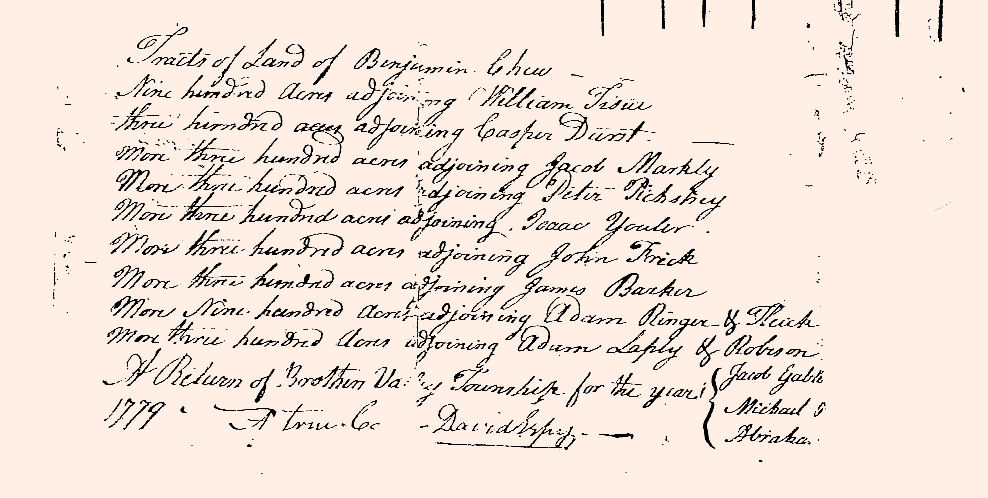 Tracts of Land of Benjamin Chew -
Nine hundred Acres adjoining William Tisue
three hundred acres adjoining Casper Durst.
More three hundred acres adjoining Jacob Markly
More three hundred acres adjoining Peter
More three hundred acres adjoining Isaac Youler.
More three hundred acres adjoining John Frick
More three hundred acres adjoining James Barker
More Nine hundred Acres adjoining Adam Ringer &
More three hundred Acres adjoining Adam Laply & Robison
A Return of Brothers Township for the year
1779. A true David Espy
Jacob
Michael
Abraha